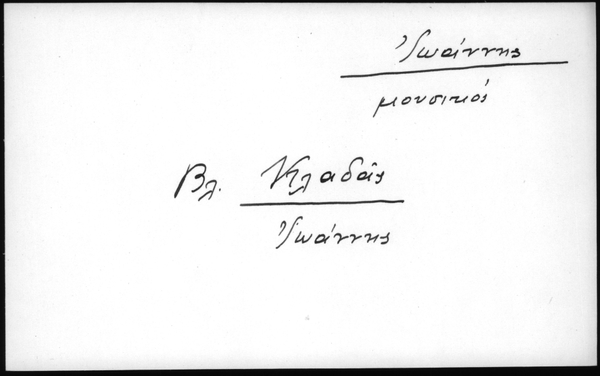 Ἰωάννης
μουσικός
Βλ. Κλαδᾶς
Ἰωάννης